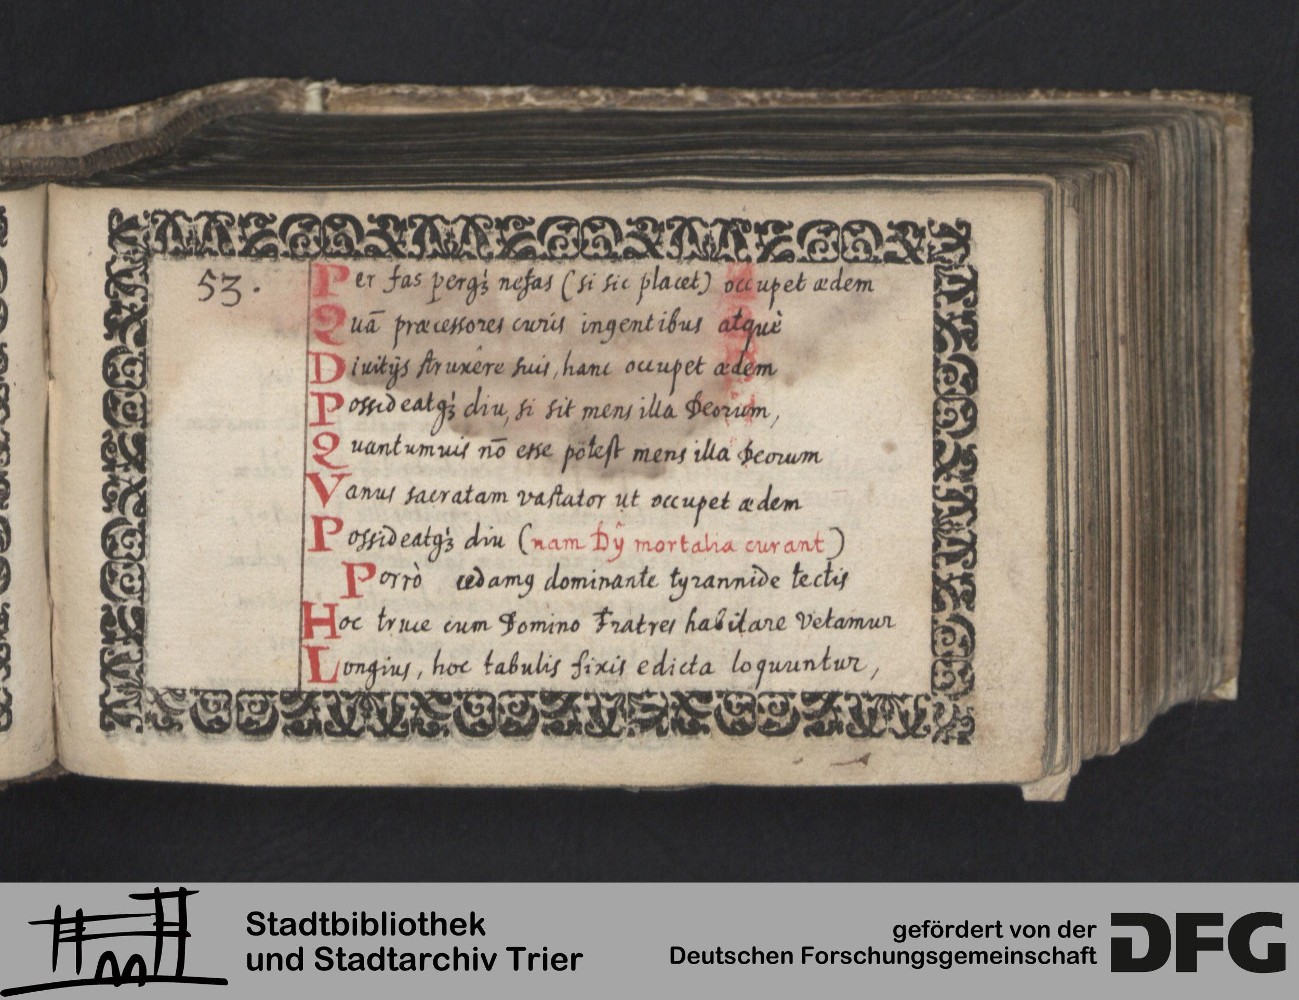 53.
Per fas pergꝫ nefas (si sic placet) occupet ædem
Quā præcessores curis ingentibus atquè
Divitijs struxêre suis, hanc occupet ædem
Possideatqꝫ diu, si sit mens illa Deorum,
Quantumvis nō esse potest mens illa Deorum
Vanus sacratam vastator ut occupet ædem
Possideatqꝫ diu (nam Dÿ mortalia curant)
Porrò cedamꝰ dominante tyrannide tectis
Hoc truce cum Domino Fratres habitare vetamur
Longius, hoc tabulis fixis edicta loquuntur,
Stadtbibliothek
und Stadtarchiv Trier
gefördert von der
Deutschen Forschungsgemeinschaft
DFG